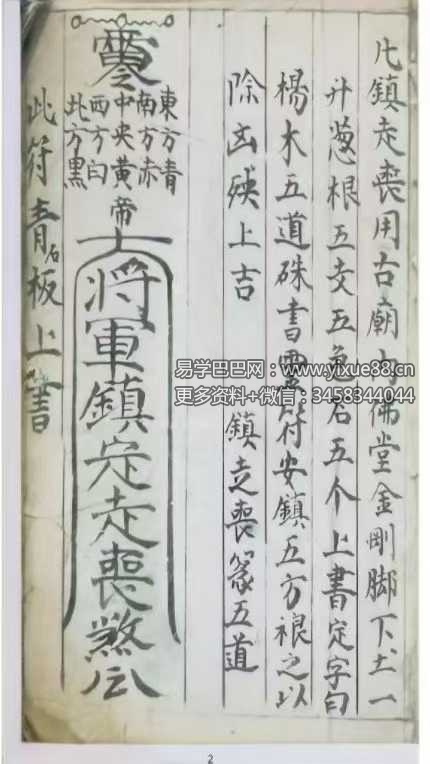 凡鎮走喪用古廟內佛堂金剛脚下土一
升葱根五支五色石五个上書定字曰
楊木五道硃書靈符安鎮五方禳之以
除凶殃上吉 鎮走喪篆五道
東方青
南方赤
中央黃帝
西方白
北方黑
士將軍鎮定走喪煞
此符青石板上書
易学巴巴网：www.yixue88.cn
更多资料+微信：3458344044
2